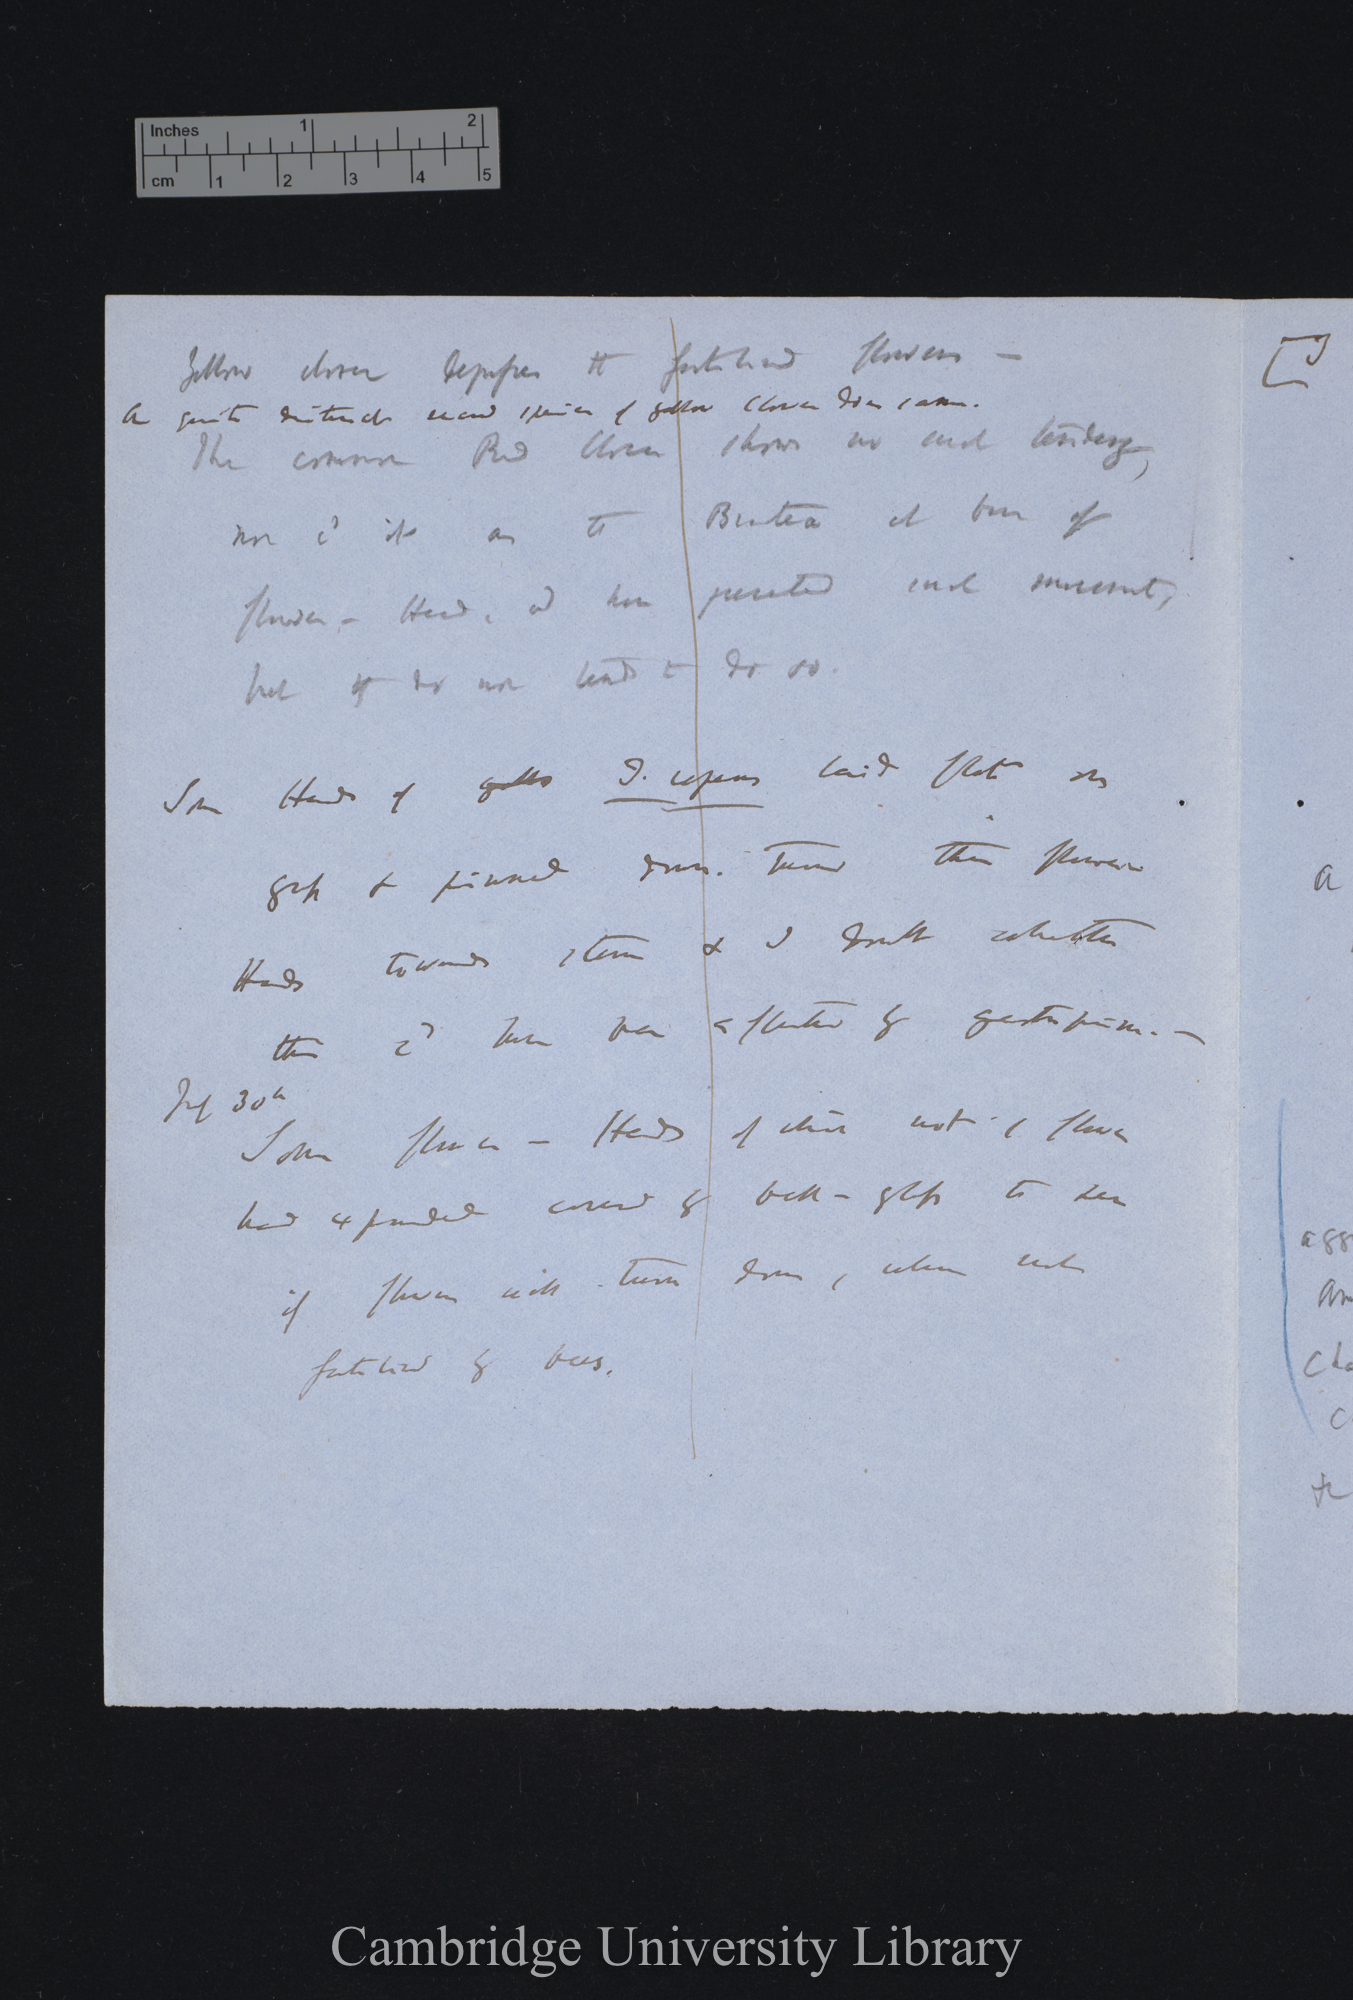 Inches 1 2
cm 1 2 3 4 5
Yellow clover depresses its fertilised flowers —
A quite distinct second species of yellow clover does same.
The common Red Clover shows no such tendency,
nor cd it as the Bractea at base of
flower-Head, wd have prevented such movement,
but they do not tend to do so.
Some Heads of T. repens laid flat on
grass & pinned down. Turned their flower
Heads towards stem & I doubt whether
this cd have been affected by
July 30th
Some flower-Heads of which not 1 flower
had expanded covered by bell-glass to see
if flowers will turn down, when not
fertilised by bees.
a
agg
c
Cambridge University Library